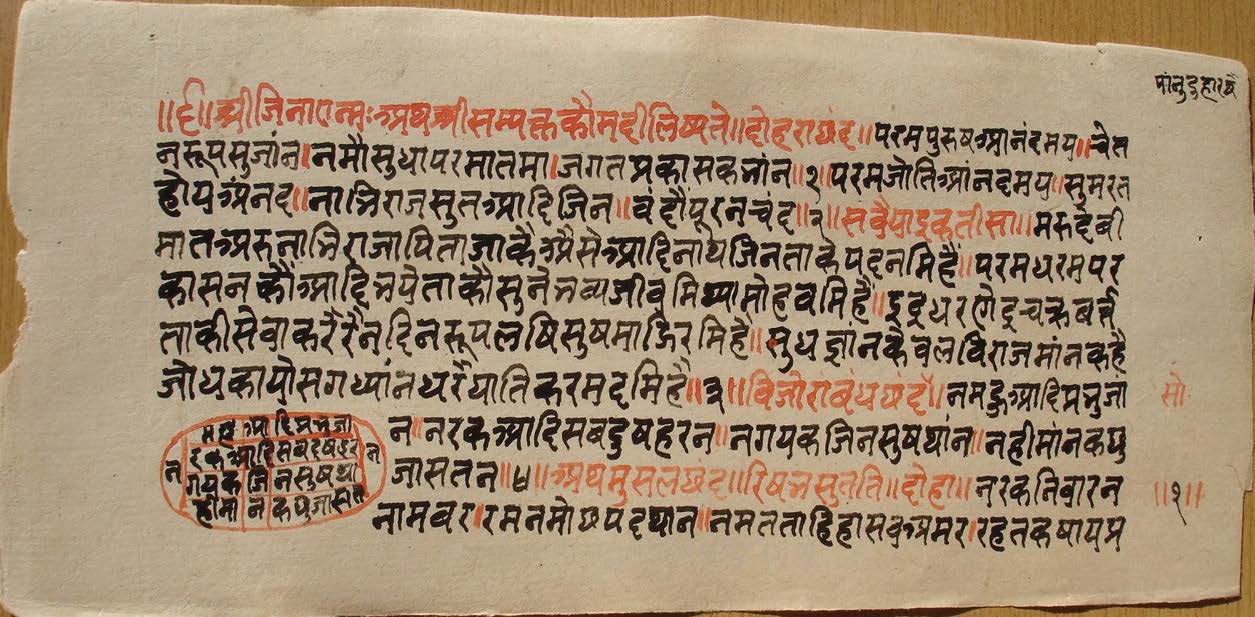 ॥र्द॥श्रीजिनायनमः अथश्रीसम्यक्तकौमदीलिष्यते॥दोहराछंद॥परमपुरुषआनंदमय॥चेत
नरूपसुजांन॥नमौसुधापरमातमा॥जगतप्रकासकभांन॥१॥परमजोतिआंनदमय॥सुमरत
होयअंनद॥नाभिराजसुतआदिजिन॥वंदौंपूरनचंद॥२॥सवैयाइकतीसा॥मरुदेबी
मातअरुनाभिराजापिताजाकैअैसेआदिनाथजिनताकेपदनमिहैं॥परमधरमपर
कासनकौंआदिभयेताकौसुनेभव्यजीवमिथ्यामोहवमिहैं॥इंद्रधरणेंद्रचक्रबर्त्त
ताकीसेवाकरैंरैंनदिनरूपलषिसुषमाझिरमिहै॥सुधज्ञानकेवलविराजमांनकहै
जोधकायोसगध्यांनधरैंघातिकरमदमिहै॥३॥विजोराबंधछंदौ॥नमहुआदिप्रभुजा
न॥नरकआदिसबदुषहरन॥नगयकजिनसुषथांन॥नहीमांनकछु
जासतन॥४॥अथमुसलछंद॥रिषभसुतति॥दोहा॥नरकनिवारन
नामवर॥रमनमोछपदथान॥नमतताहिहासवअमर॥रहतकषायप्र
सो
॥१॥